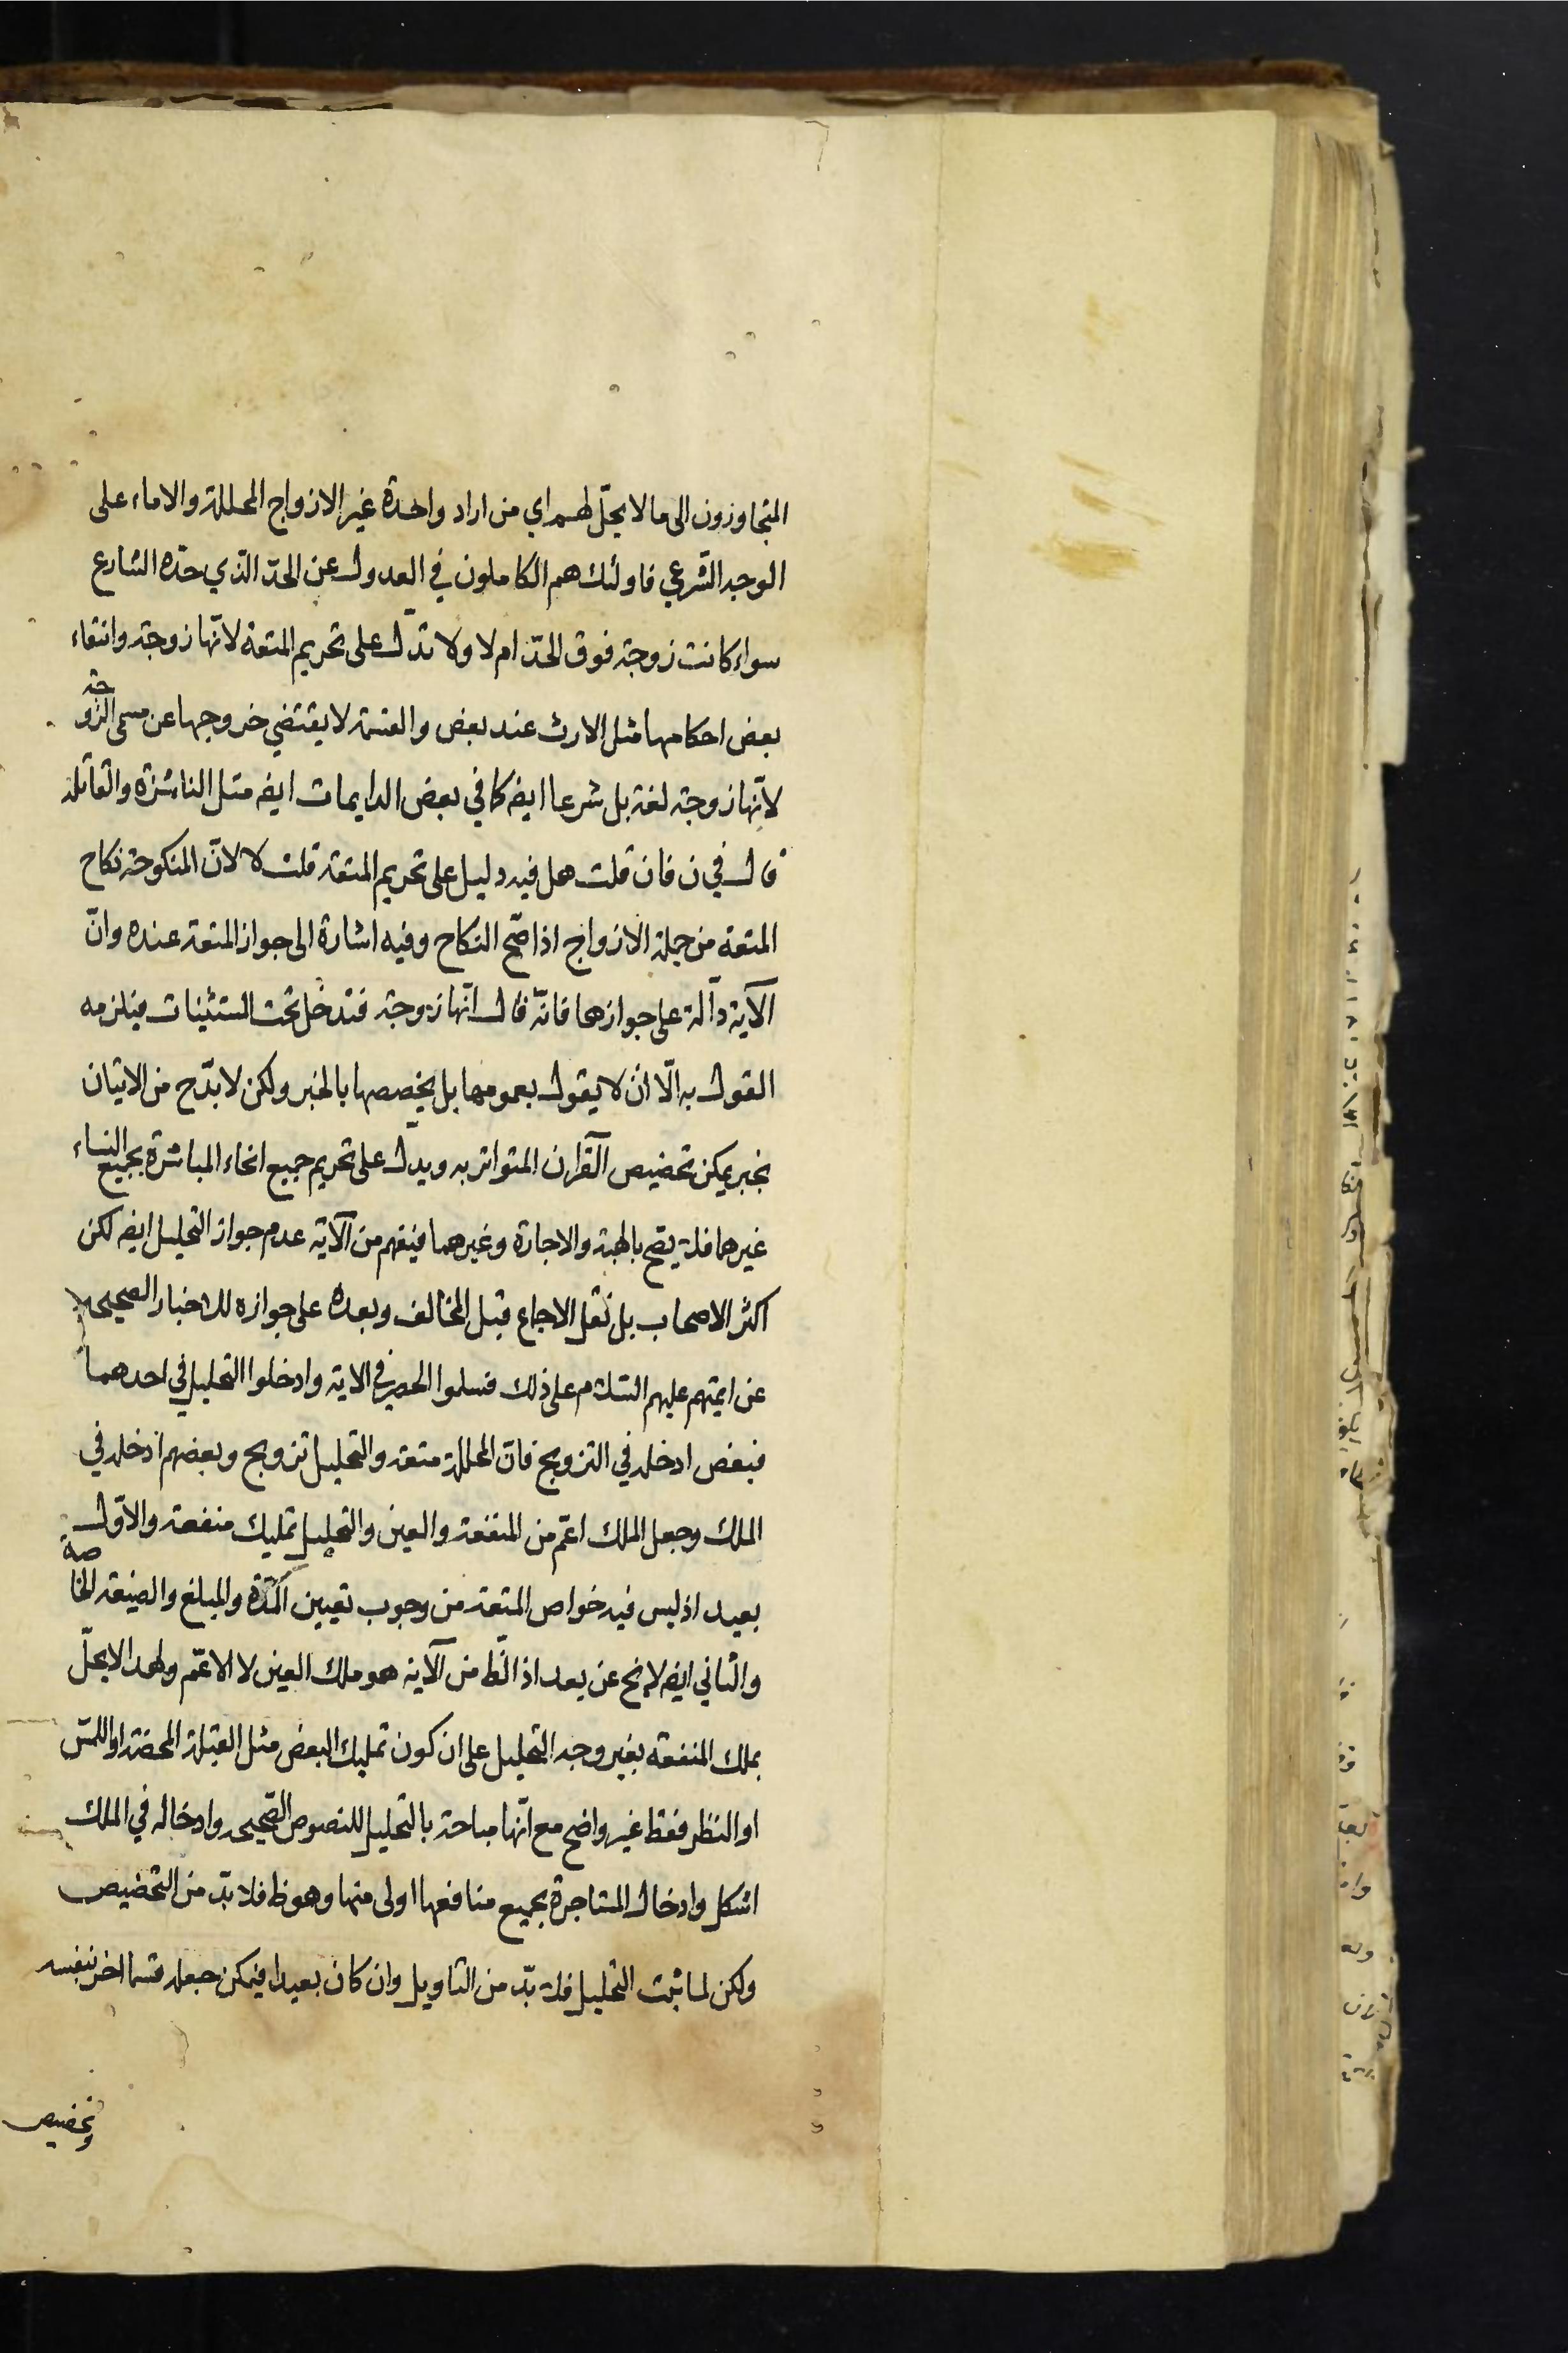 المتجاوزون الى ما لا يحلّ لهم اي من اراد واحدة غير الازواج المحللة والاماء على
الوجه الشرعي فاولئك هم الكاملون في العدول عن الحدّ الذي حدّه الشارع
سواء كانت زوجة فوق الحدّ ام لا ولا تدلّ على تحريم المتعة لانّها زوجة وانتفاء
بعض احكامها مثل الارث عند بعض والقسمة لا يقتضي خروجها عن مسمى الزوجة
لانّها زوجة لغة بل شرعا ايضا كما في بعض الدايمات ايضا مثل الناشزة والقاتلة
قال في ن فان قلت هل فيه دليل على تحريم المتعة قلت لا لانّ المنكوحة نكاح
المتعة من جملة الازواج اذا صّح النكاح وفيه اشارة الى جواز المتعة عنده وانّ
الآية دآلة على جوازها فانّه قال انّها زوجة فتدخل تحت المستثنيات فيلزمه
القول به الّا ان لا يقول بعمومها بل يخصصها بالخبر ولكن لا بدّ ح من الاتيان
بخبر يمكن تخصيص القرآن المتواتر به ويدلّ على تحريم جميع انحاء المباشرة بجميع النساء
غيرهما فلا يصح بالهبة والاجارة وغيرهما فيفهم من الآية عدم جواز التحليل ايضا لكن
اكثر الاصحاب بل نقل الاجماع قبل المخالف وبعده على جوازه للاخبار الصحيحة
عن ايمتهم عليهم السلام على ذلك فسلموا الحصر في الاية وادخلوا التحليل في احدهما
فبعض ادخله في التزويج فانّ المحللة متعة والتحليل تزويج وبعضهم ادخله في
الملك وجعل الملك اعمّ من المنفعة والعين والتحليل تمليك منفعة والاوّل
بعيد اذ ليس فيه خواص المتعة من وجوب تعيين المدّة والمبلغ والصيغة الخاصة
والثاني ايضا لا يخ عن بعد اذ الظ من الآية هو ملك العين لا الاعمّ ولهذا لا يحلّ
بملك المنفعة بغير وجه التحليل على ان كون تمليك البعض مثل القبلة المحضة او اللمس
او النظر فقط غير واضح مع انّها مباحة بالتحليل للنصوص الصّحيحة وادخاله في الملك
اشكل وادخال المستاجرة بجميع منافعها اولى منها وهو ظ فلا بدّ من التخصيص
ولكن لما ثبت التحليل فلا بدّ من التاويل وان كان بعيدا فيمكن جعله قسما اخر بنفسه
وتخصيص